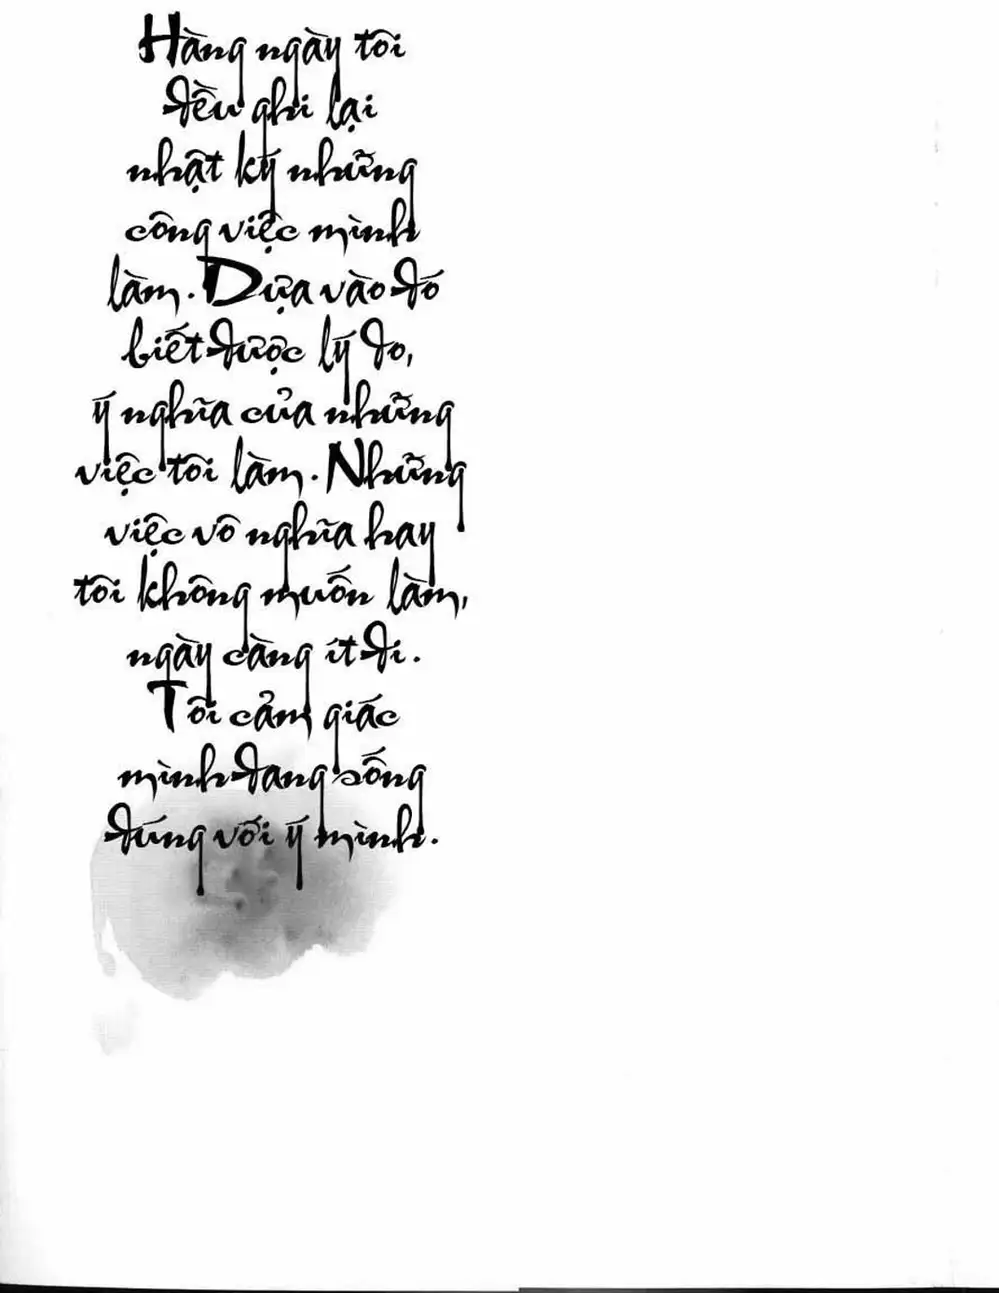 Hàng ngày tôi
đều ghi lại
nhật ký những
công việc mình
làm. Dựa vào đó
biết được lý do,
ý nghĩa của những
việc tôi làm. Những
việc vô nghĩa hay
tôi không muốn làm,
ngày càng ít đi.
Tôi cảm giác
mình đang sống
đúng với ý mình.